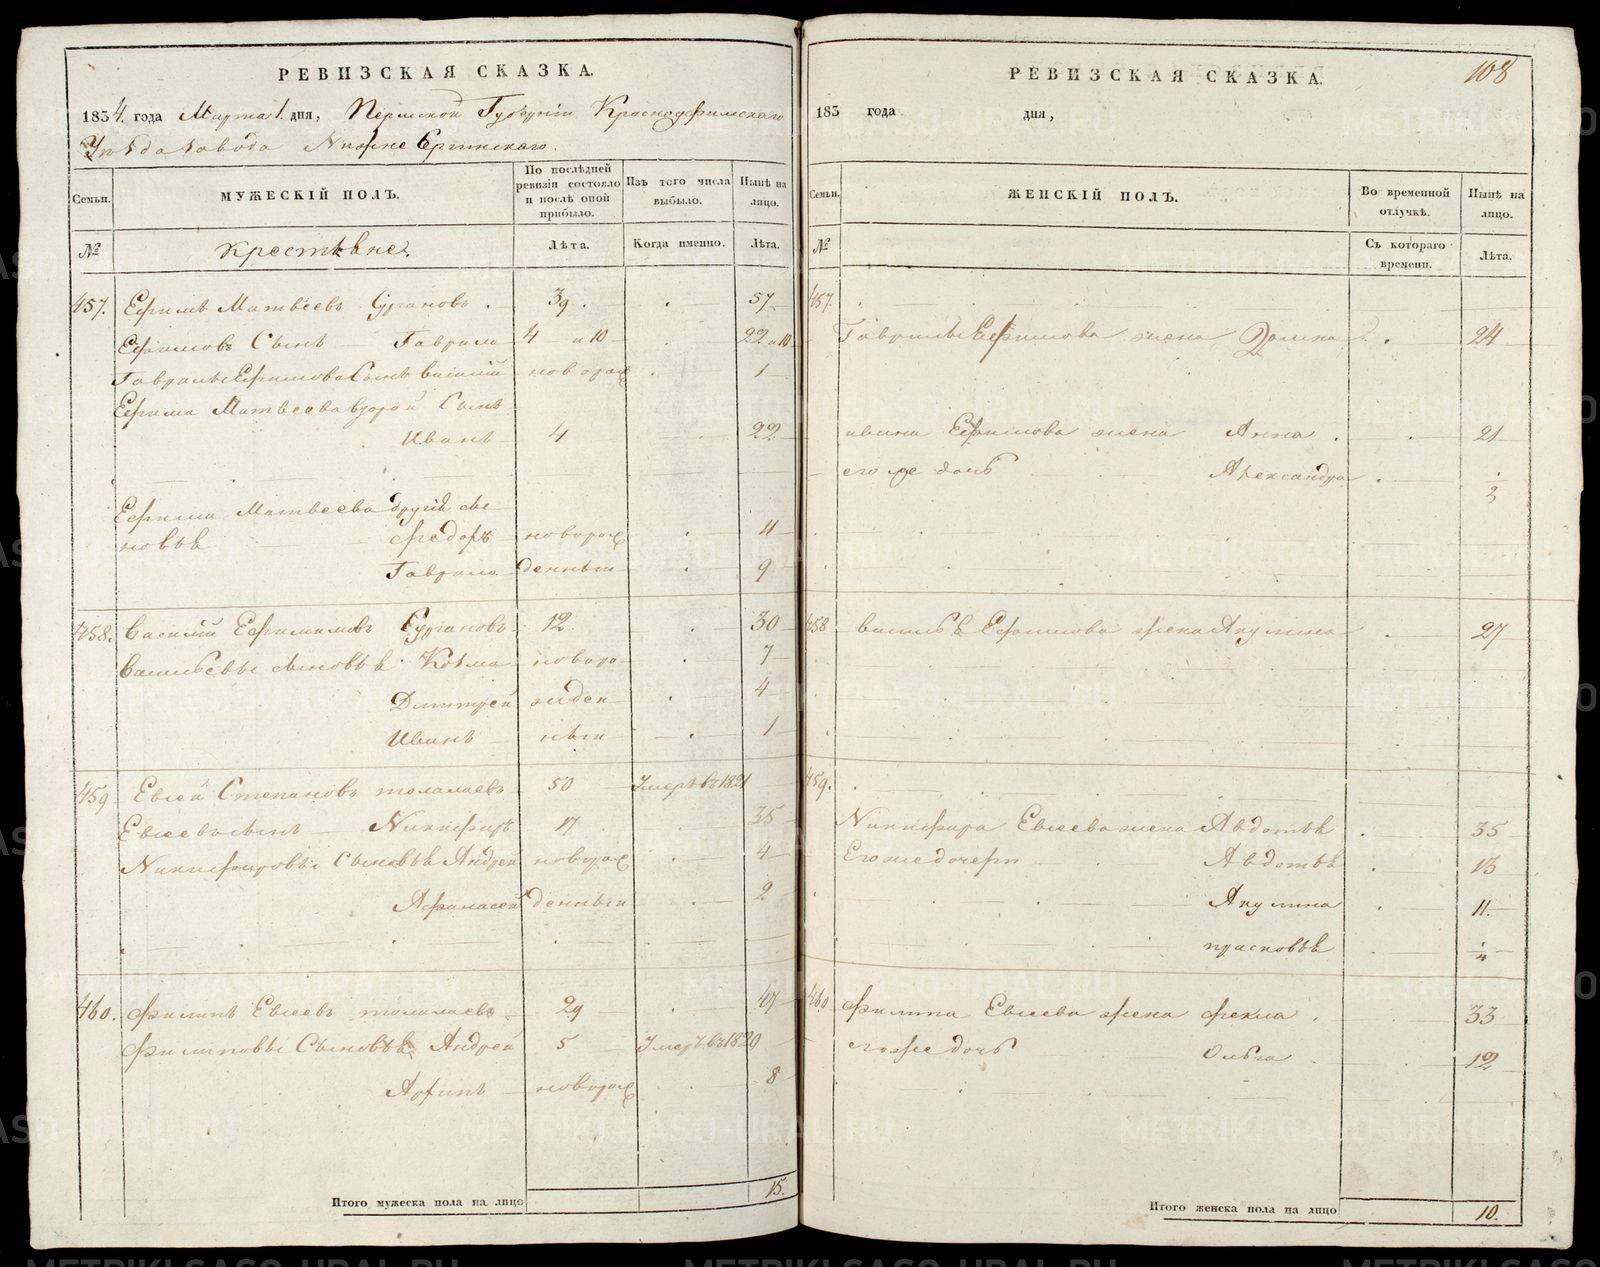 РЕВИЗСКАЯ СКАЗКА.
1834. года Марта 1. дня, Пермской Губерніи Красноуфимскаго
Уѣзда Завода Нижне Сергинскаго.
Семьи. МУЖЕСКІЙ ПОЛЪ. По послѣдней ревизіи состояло и послѣ оной прибыло. Изъ того числа выбыло. Нынѣ на лицо.
№ Крестьяне. Лѣта. Когда именно. Лѣта.
457. Ефимъ Матвѣевъ 39. 57
Ефимовъ Сынъ Гаврила 4 и 10 22 и 10
Гаврилы Ефимова Сынъ василій новорож 1
Ефима Матвеева второй Сынъ
Иванъ 4 22
Ефима Матвеева другіе сы
новья Федоръ новорож 11
Гаврило денныи 9
458. Василій Ефимовъ 12 30
Васильевы сыновья Козма новоро 7
Дмитрей жден 4
Иванъ ныи 1
459 Евсей Степановъ 50 Умеръ въ 1821
Евсеевъ сынъ Никифоръ 17 35
Никифоровы Сыновья Андрей новорож 4
Афанасей денныи 2
460. Филипъ Евсеевъ 29 47
Филиповы Сыновья Андрей 5 Умеръ въ 1820
Архипъ новорож 8
Итого мужеска пола на лицо 15.
108
РЕВИЗСКАЯ СКАЗКА.
183 года дня,
Семьи. ЖЕНСКІЙ ПОЛЪ. Во временной отлучкѣ. Нынѣ на лицо.
№ Съ котораго времени. Лѣта.
457.
Гаврилы Ефимова жена 24
ивана Ефимова жена Анна 21
его же дочь Александра
458 василья Ефимова жена Акулина 27
459.
Никифора Евсеева жена Авдотья 35
Его же дочери Авдотья 13
Акулина 11.
прасковья
460 Филипа Евсеева жена фекла 33
его же дочь Ольга 12
Итого женска пола на лицо 10.
METRIKI.GASO-URAL.RU